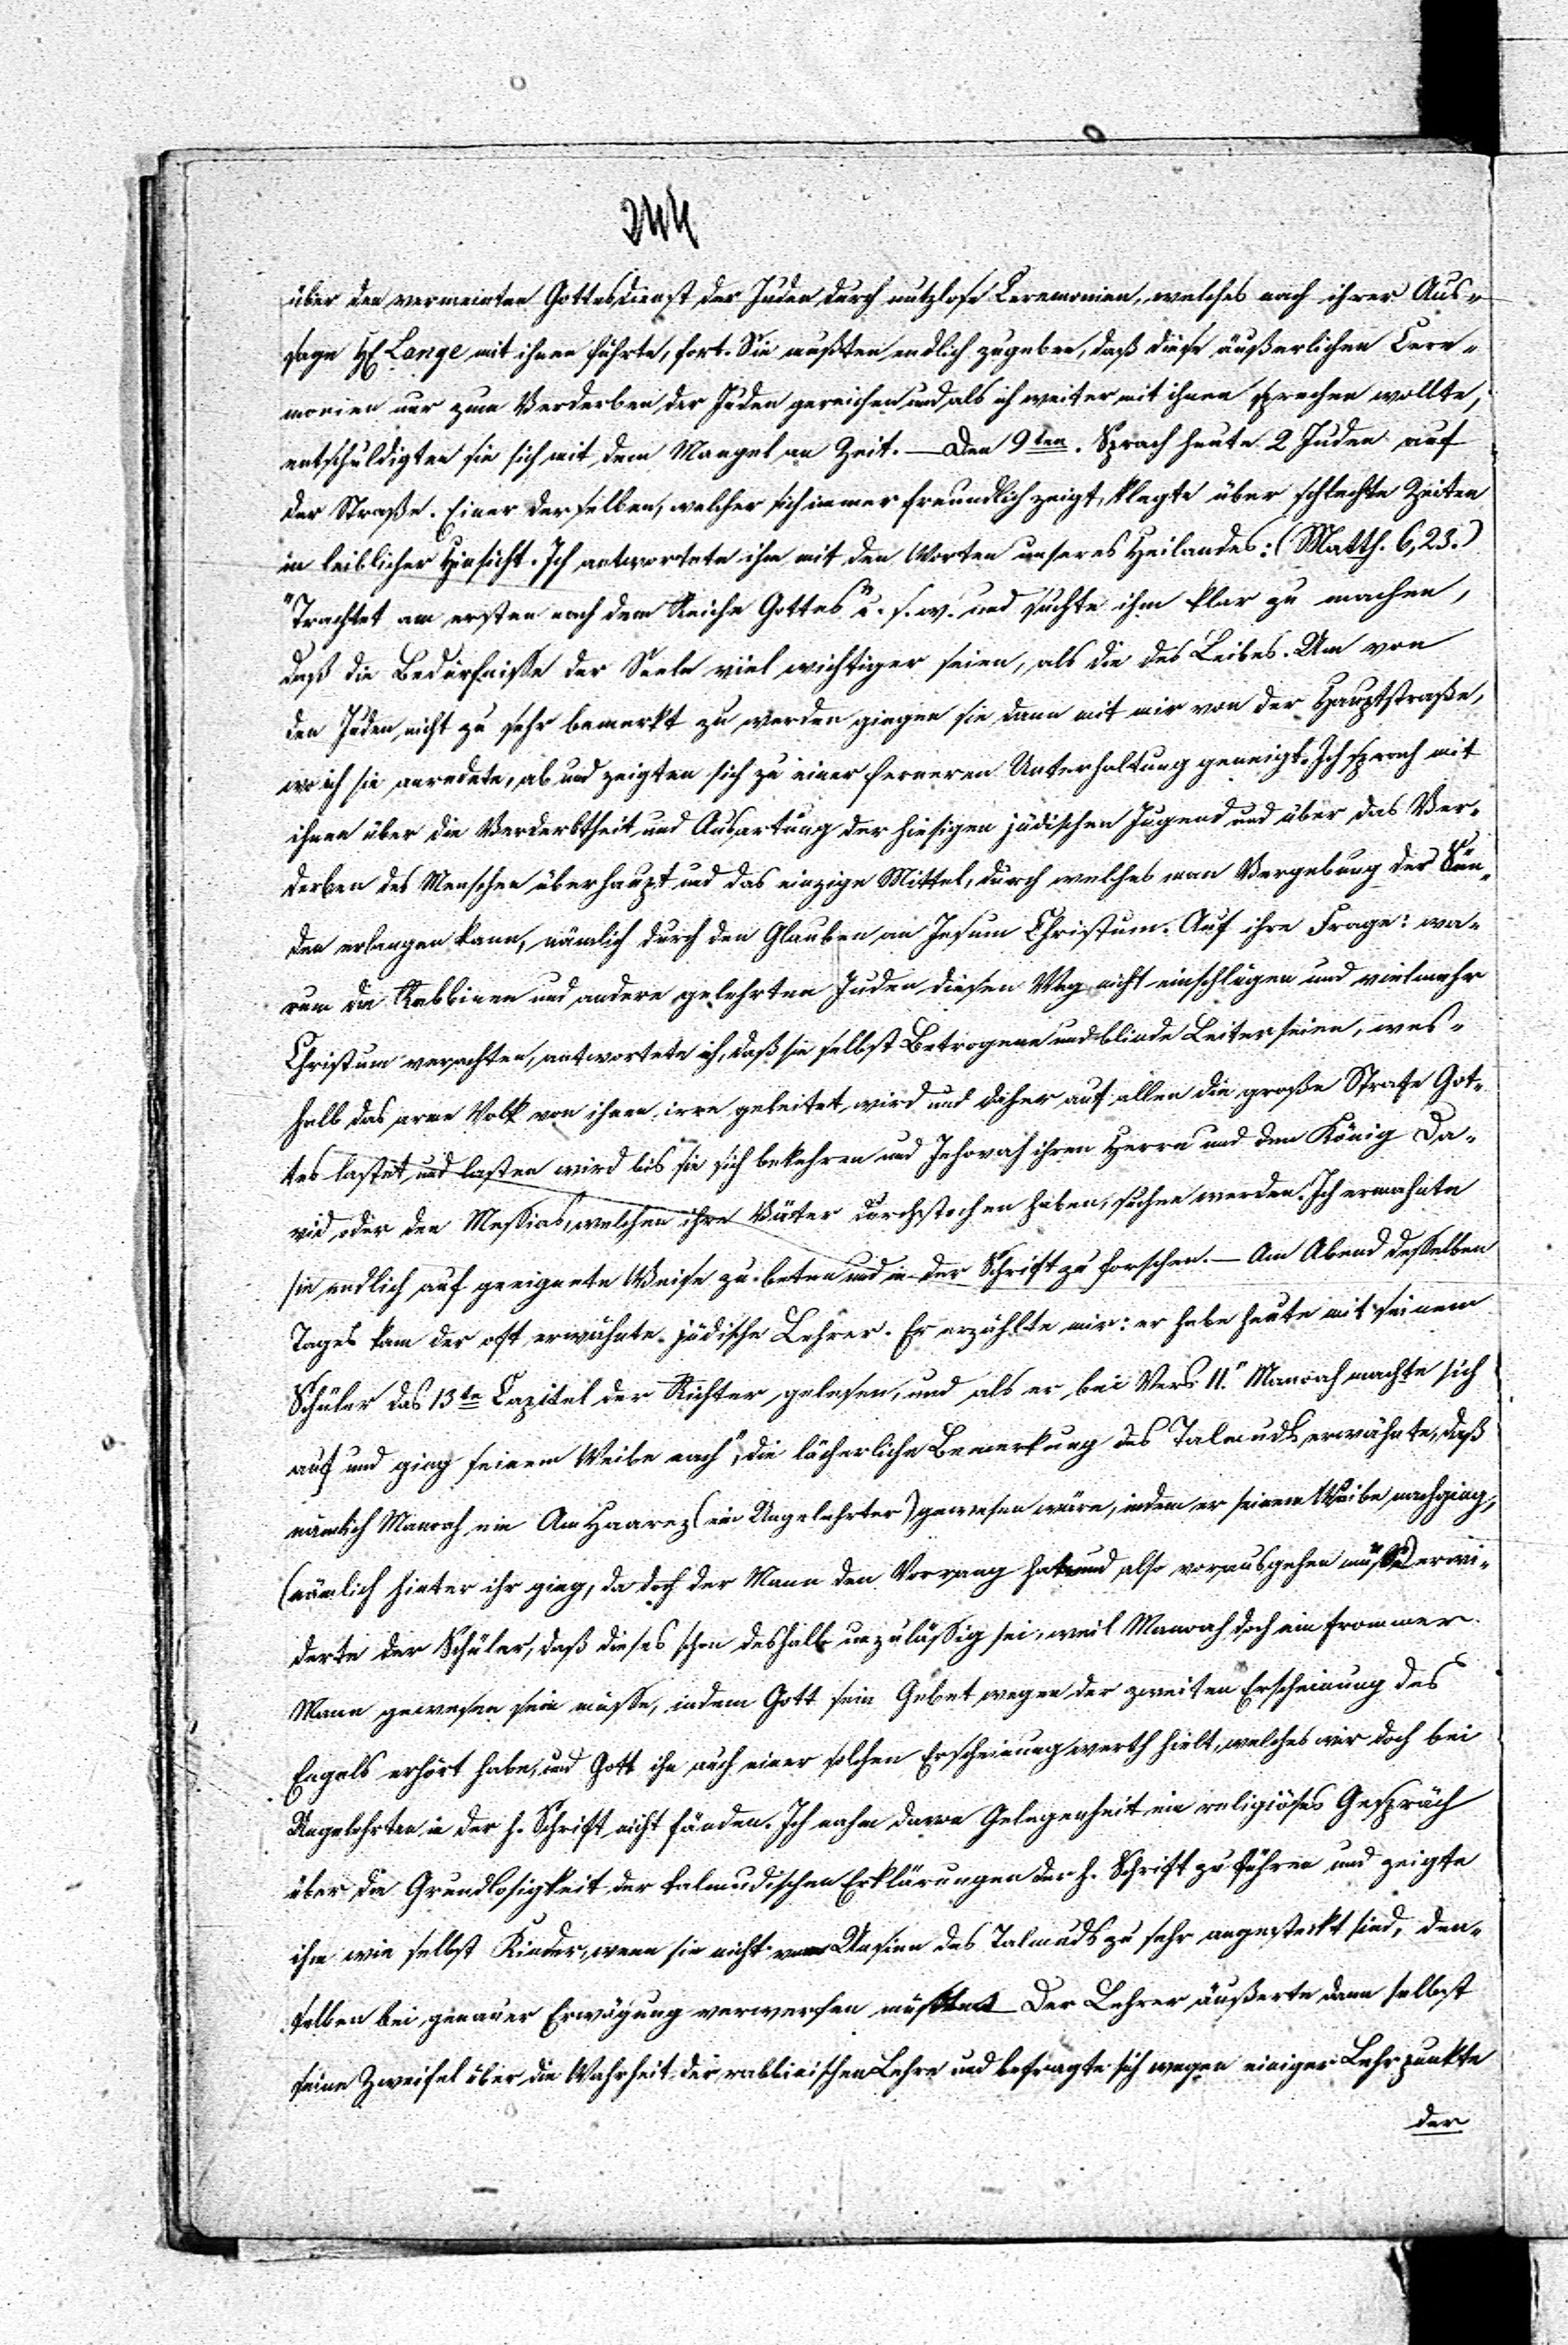 244
über den vermeinten Gottesdienst der Juden durch nutzlose Ceremonien, welches nach ihrer Aus-
sage H Lange mit ihnen führte, fort. Sie mußten endlich zugeben, daß diese äußerlichen Cere-
monien nur zum Verderben der Juden gereichen und als ich weiter mit ihnen sprechen wollte,
entschuldigten sie sich mit dem Mangel an Zeit. — Den 9ten. Sprach heute 2 Juden auf
der Straße. Einer derselben, welcher sich immer freundlich zeigt, klagte über schlechte Zeiten
in leiblicher Hinsicht. Ich antwortete ihm mit den Worten unseres Heilandes: (Matth. 6,23.)
"Trachtet am ersten nach dem Reiche Gottes" u. s. w. und suchte ihm klar zu machen,
daß die Bedürfniße der Seele viel wichtiger seien, als die des Leibes. Um von
den Juden nicht zu sehr bemerkt zu werden giengen sie dann mit mir von der Hauptstraße,
wo ich sie anredete, ab und zeigten sich zu einer ferneren Unterhaltung geneigt. Ich sprach mit
ihnen über die Verderbtheit und Ausartung der hiesigen jüdischen Jugend und über das Ver-
derben des Menschen überhaupt und das einzige Mittel, durch welches man Vergebung der Sün-
den erlangen kann, nämlich durch den Glauben an Jesum Christum. Auf ihre Frage: wa-
rum die Rabbinen und andere gelehrten Juden diesen Weg nicht einschlügen und vielmehr
Christum verachten, antwortete ich, daß sie selbst Betrogene und blinde Leiter seien, wes-
halb das arme Volk von ihnen irre geleitet wird und daher auf allen die große Strafe Got-
tes lastet und lasten wird bis sie sich bekehren und Jehovah ihren Herrn und den König Da-
vid oder den Messias, welchen ihre Väter durchstochen haben, suchen werden. Ich ermahnte
sie endlich auf geeignete Weise zu beten und in der Schrift zu forschen. — Am Abend desselben
Tages kam der oft erwähnte jüdische Lehrer. Er erzählte mir: er habe heute mit seinem
Schüler das 13te Capitel der Richter gelesen, und als er bei Vers 11. "Manoah machte sich
auf und gieng seinem Weibe nach", die lächerliche Bemerkung des Talmuds erwähnte, daß
nämlich Manoah ein Am Haarez (ein Ungelehrter) gewesen wäre, indem er seinem Weibe nachgieng,
(nämlich hinter ihr gieng, da doch der Mann den Vorrang hat und also vorausgehen müßte) erwi-
derte der Schüler, daß dieses schon deshalb unzuläßig sei, weil Manoah doch ein frommer
Mann gewesen sein müsse, indem Gott sein Gebet wegen der zweiten Erscheinung des
Engels erhört habe, und Gott ihn auch einer solchen Erscheinung werth hielt, welches wir doch bei
Ungelehrten in der h. Schrift nicht fänden. Ich nahm davon Gelegenheit ein religiöses Gespräch
über die Grundlosigkeit der talmudischen Erklärungen der h. Schrift zu führen und zeigte
ihm wie selbst Kinder, wenn sie nicht vom Unsinn des Talmuds zu sehr angesteckt sind, den-
selben bei genauer Erwägung verwerfen müßten. Der Lehrer äußerte dann selbst
seine Zweifel über die Wahrheit der rabbinischen Lehre und befragte sich wegen einiger Lehrpunkte
der